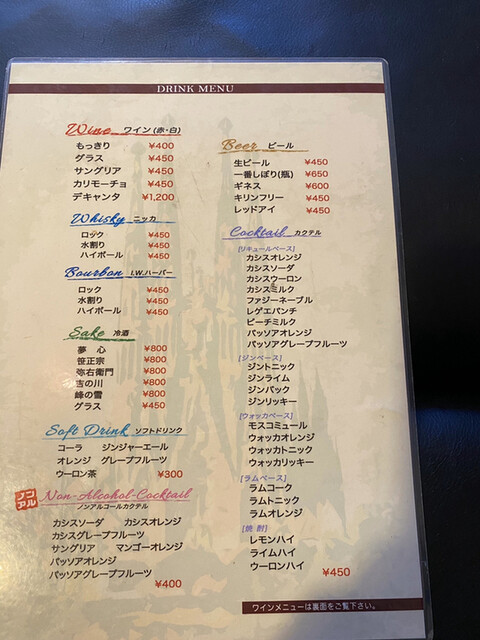 DRINK MENU
Wine ワイン(赤・白)
もっきり ¥400
グラス ¥450
サングリア ¥450
カリモーチョ ¥450
デキャンタ ¥1,200
Whisky ニッカ
ロック ¥450
水割り ¥450
ハイボール ¥450
Bourbon I.W.ハーパー
ロック ¥450
水割り ¥450
ハイボール ¥450
Sake 冷酒
夢心 ¥800
笹正宗 ¥800
弥右衛門 ¥800
吉の川 ¥800
峰の雪 ¥800
グラス ¥450
Soft Drink ソフトドリンク
コーラ ジンジャーエール
オレンジ グレープフルーツ
ウーロン茶 ¥300
ノンアル Non-Alcohol-Cocktail
ノンアルコールカクテル
カシスソーダ カシスオレンジ
カシスグレープフルーツ
サングリア マンゴーオレンジ
パッソアオレンジ
パッソアグレープフルーツ
¥400
Beer ビール
生ビール ¥450
一番しぼり(瓶) ¥650
ギネス ¥600
キリンフリー ¥450
レッドアイ ¥450
Cocktail カクテル
[リキュールベース]
カシスオレンジ
カシスソーダ
カシスウーロン
カシスミルク
ファジーネーブル
レゲエパンチ
ピーチミルク
パッソアオレンジ
パッソアグレープフルーツ
[ジンベース]
ジントニック
ジンライム
ジンバック
ジンリッキー
[ウォッカベース]
モスコミュール
ウォッカオレンジ
ウォッカトニック
ウォッカリッキー
[ラムベース]
ラムコーク
ラムトニック
ラムオレンジ
[焼酎]
レモンハイ
ライムハイ
ウーロンハイ ¥450
ワインメニューは裏面をご覧下さい。